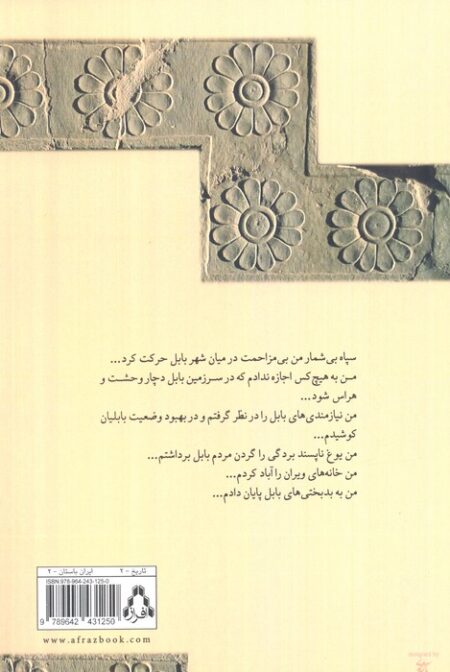 سپاه بی‌شمار من بی‌مزاحمت در میان شهر بابل حرکت کرد...
من به هیچ‌کس اجازه ندادم که در سرزمین بابل دچار وحشت و
هراس شود...
من نیازمندی‌های بابل را در نظر گرفتم و در بهبود وضعیت بابلیان
کوشیدم...
من یوغ ناپسند بردگی را گردن مردم بابل برداشتم...
من خانه‌های ویران را آباد کردم...
من به بدبختی‌های بابل پایان دادم...
تاریخ - ۲ ایران باستان - ۲
ISBN:978-964-243-125-0
9 789642 431250
افراز
www.afrazbook.com
designed by